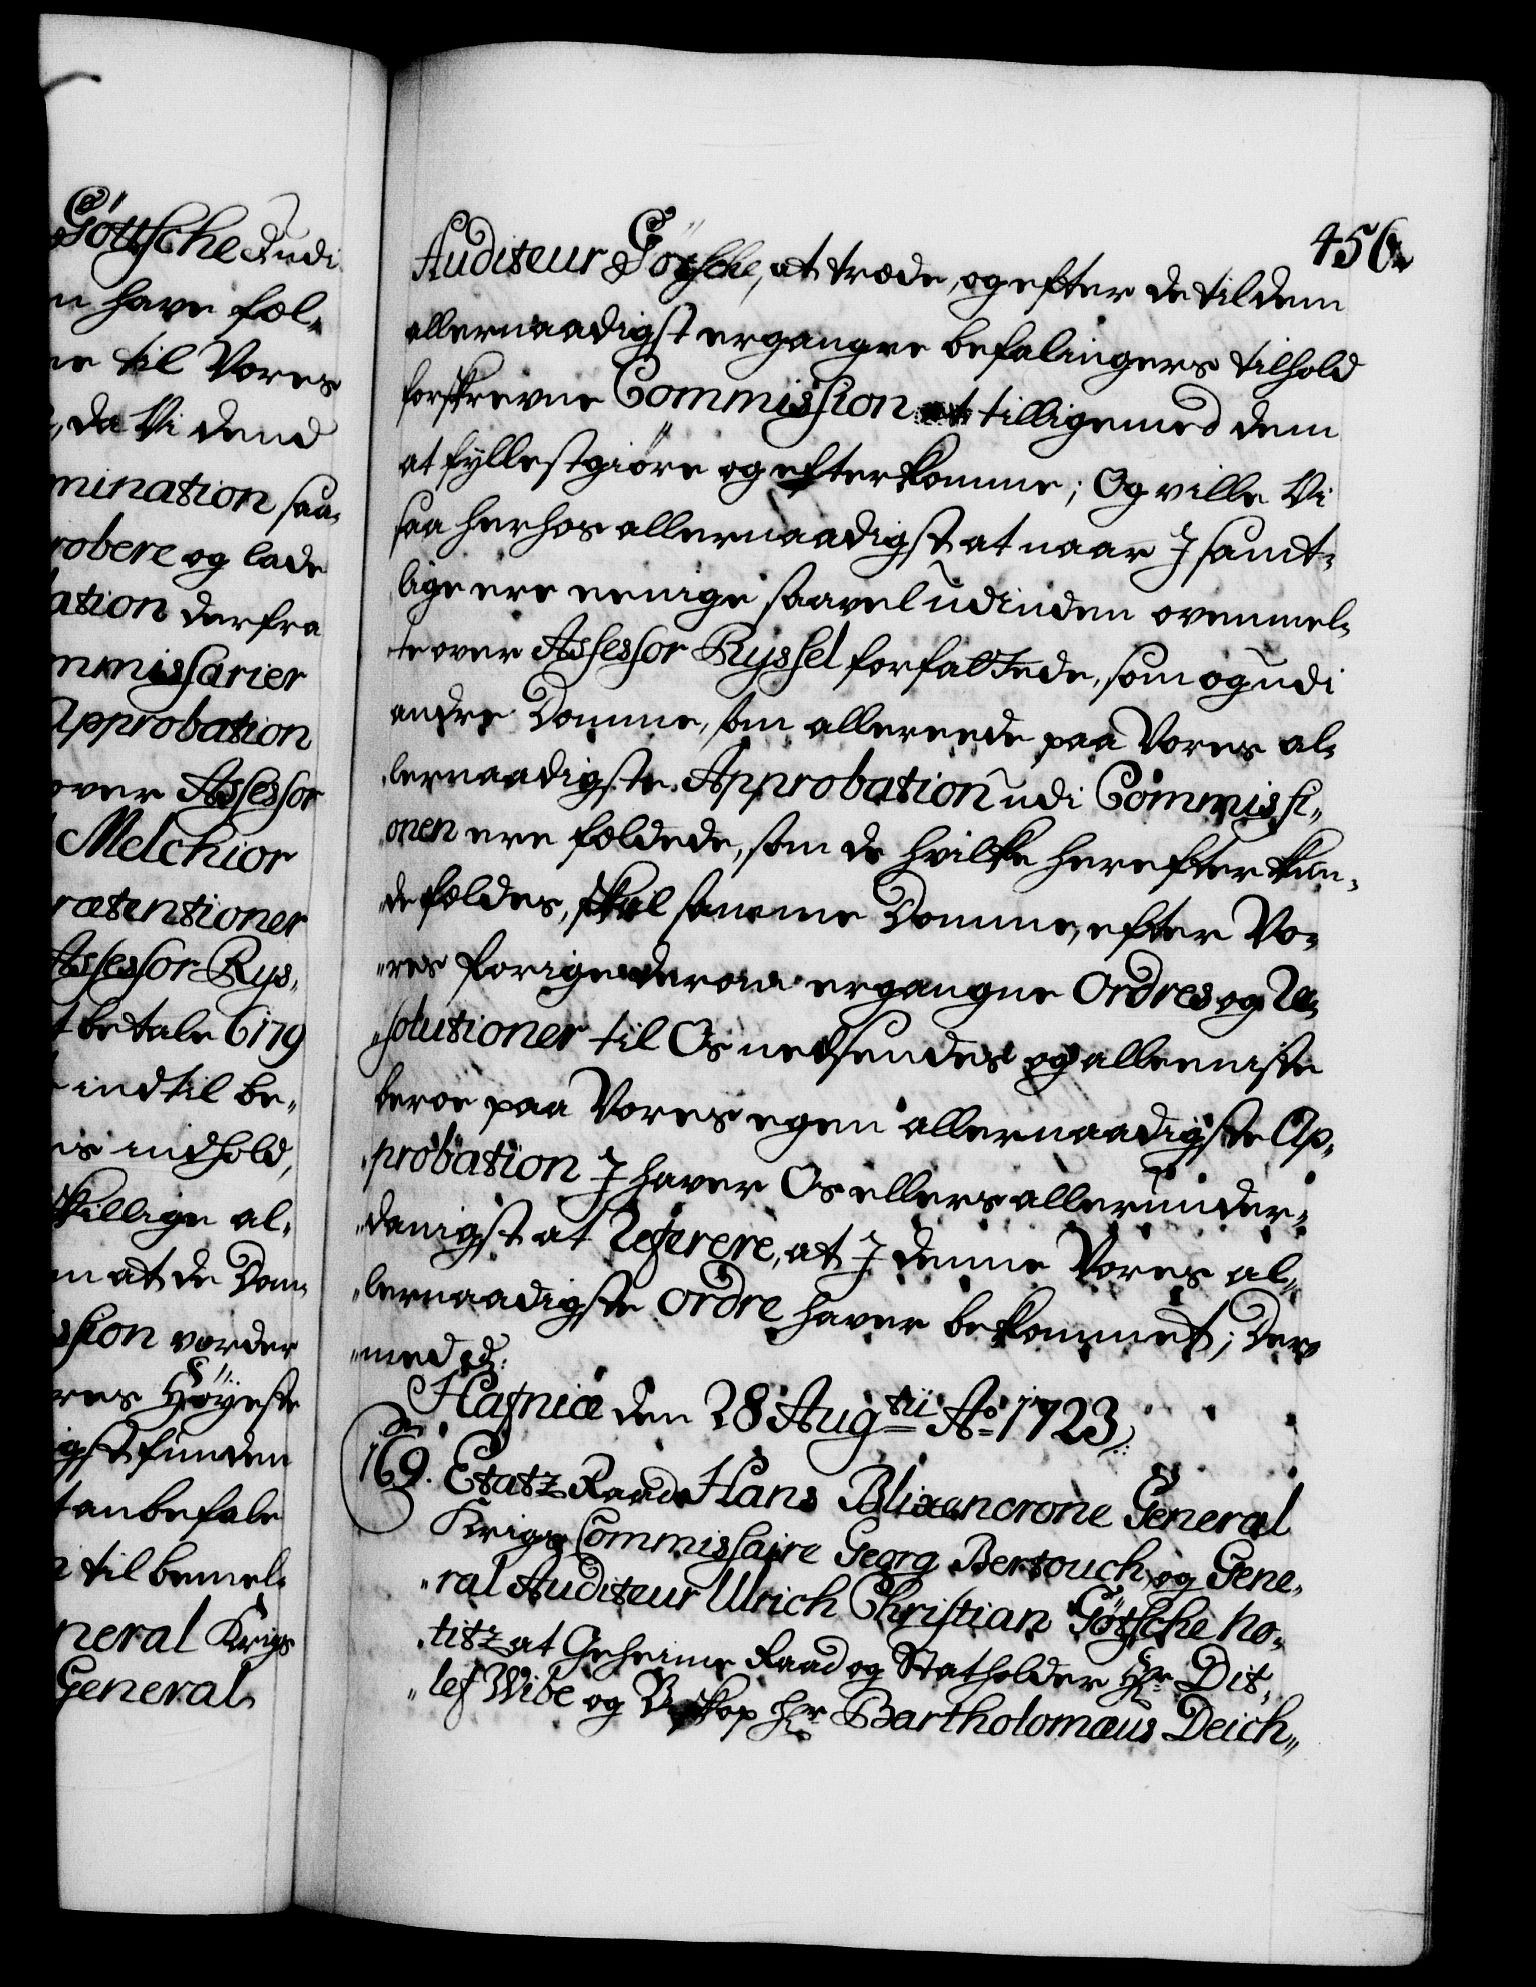 Göttsche udi
n have fæl-
ne til Vores
, da Vi dend
mination saa-
robere og lade
ation derfra
mmissarier
Approbation
over Assessor
Melchior
rætentioner
Assessor Rys-
t betale 6179
indtil be-
is indhold,
skillige al-
m at de Dom-
ssion vorder
res Höyeste
igst funden
t anbefale
til bemel-
neral Krigs
General
456
Auditeur Götsche, at træde, og efter de til dem
allernaadigst ergangne befalingers tilhold
forskrevne Commission tilligemed dem
at fyllestgiöre og efterkomme; Og ville Vi
saa herhos allernaadigst at naar I samt-
lige ere eenige saavel udi den ovenmel-
te over Assessor Ryssel forfattede, som og udi
andre Domme, som allereede paa Vores al-
lernaadigste Approbation udi Commissi-
onen ere fældede, som de hvilke herefter kun-
de fældes, skal samme Domme, efter Vo-
res forige derom ergangne Ordres og Re-
solutioner til Os nedsendes og alleeniste
beroe paa Vores egen allernaadigste Ap-
probation I haver Os ellers allerunder-
danigst at Referere, at I denne Vores al-
lernaadigste Ordre haver bekommet; Der-
med p:
Hafniæ den 28 Augtii Ao 1723
169. Etatz Raad Hans Blixencrone General
Krigs Commissaire Georg Bertouch og Gene-
ral Auditeur Ulrich Christian Götsche No-
titz at Geheime Raad og Statholder Hr Dit-
lef Wibe og Biskop Hr Bartholomæus Deich-